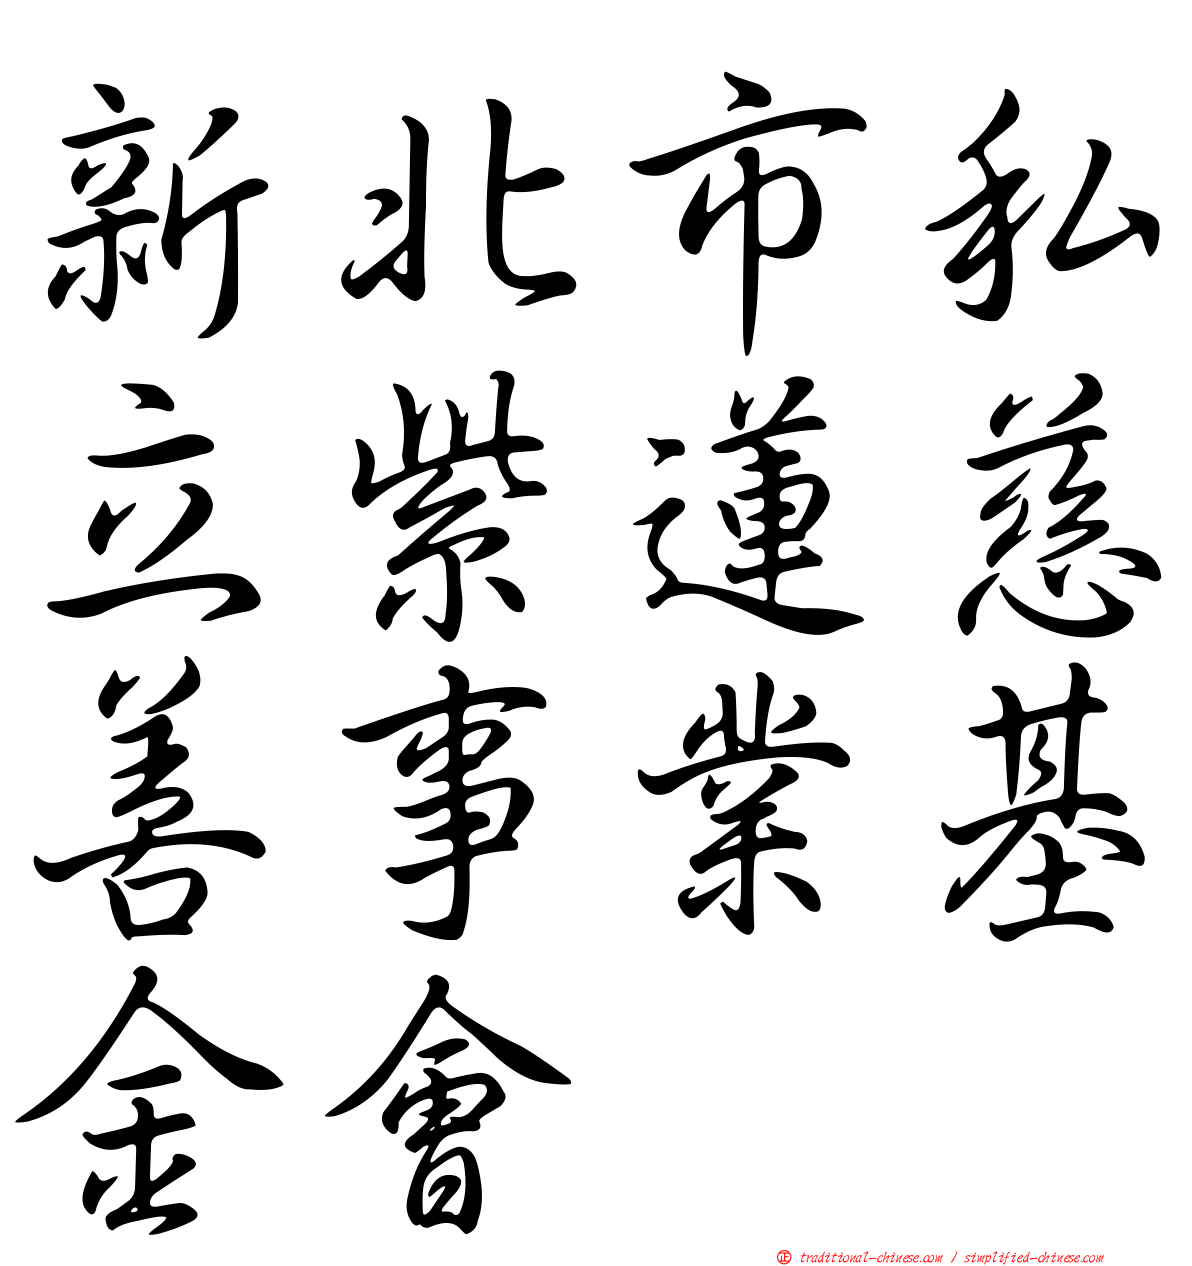 新北市私
立紫蓮慈
善事業基
金會
正 traditional-chinese.com / simplified-chinese.com